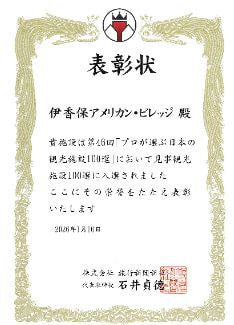 表彰状
伊香保アメリカン・ビレッジ 殿
貴施設は第46回「プロが選ぶ日本の
観光施設100選」において見事観光
施設100選に入選されました
ここにその栄誉をたたえ表彰
いたします
2026年1月16日
株式会社 旅行新聞新社
代表取締役 石井貞德